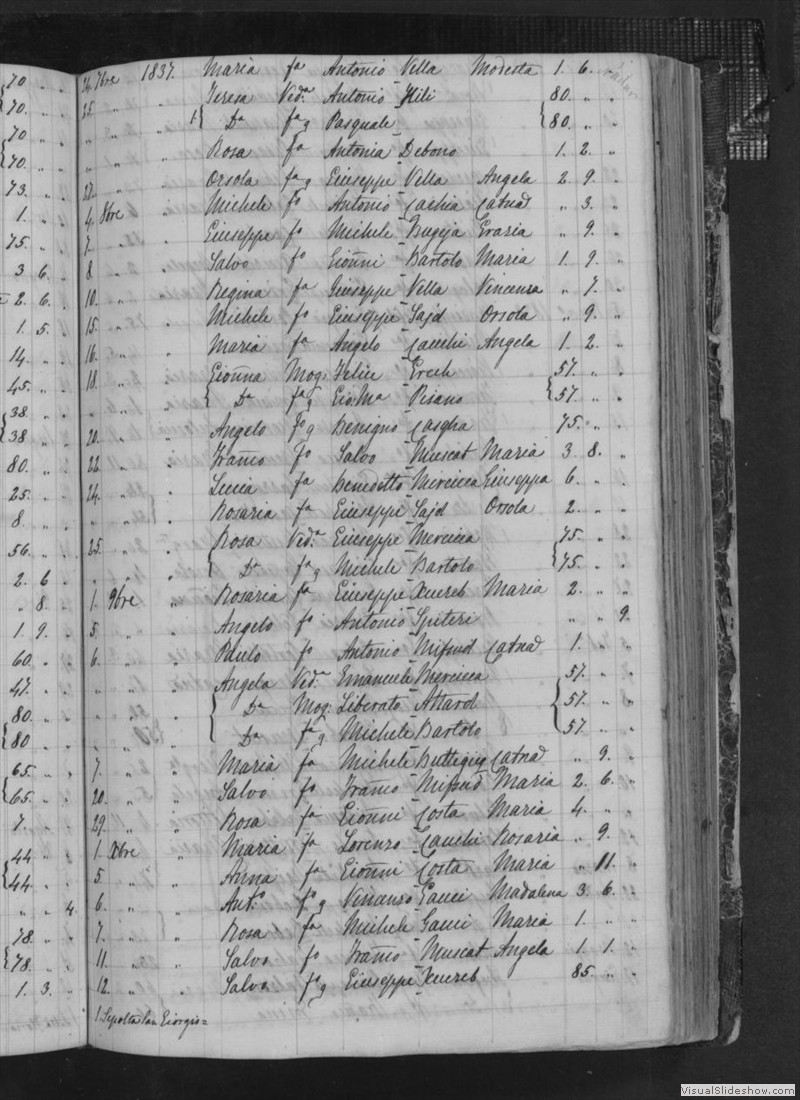 70. „ „ 24. 7bre 1837. Maria fa Antonio Villa Modesta 1. 6.
70. „ „ 25. „ „ Teresa Ved.a Antonio Hili 80. „ „
70 „ „ „ „ „ 1{ Da fa g Pasquale {80. „ „
{70. „ „ „ „ „ Rosa fa Antonia Debono 1. 2. „
73. „ „ 27. „ „ Orsola fa g Giuseppe Villa Angela 2. 9. „
1. „ „ 4. 8bre „ Michele fo Antonio Cachia Catna „ 3. „
75. „ „ 7. „ „ Giuseppe fo Michele Bugeja Grazia „ 9. „
3 6. „ 8. „ „ Salvo fo Gioñni Bartolo Maria 1. 9. „
2. 6. „ 10. „ „ Regina fa Giuseppe Vella Vincenza „ 7. „
1. 5. „ 15. „ „ Michele fo Giuseppe Sajd Orsola „ 9. „
14. „ „ 16. „ „ Maria fa Angelo Cauchi Angela 1. 2. „
45. „ „ 18. „ „ Gioñna Mog: Felice Grech 57. „ „
{38. „ „ „ „ „ { Da fa g Gio.Ma Pisano {57. „ „
{38 „ „ 20. „ „ Angelo fo g Benigno Casha 75. „ „
80. „ „ 22. „ „ Frañco fo Salvo Muscat Maria 3 8. „
25. „ „ 24. „ „ Lucia fa Benedetto Mercieca Giuseppa 6. „ „
8. „ „ „ „ „ Rosaria fa Giuseppe Sajd Orsola 2. „ „
56. „ „ 25. „ „ Rosa Ved.a Giuseppe Mercieca 75. „ „
2. 6 „ „ „ „ { Da fa g Michele Bartolo {75. „ „
„ 8. „ 1. 9bre „ Rosaria fa Giuseppe Xuereb Maria 2. „ „
1. 9. „ 5. „ „ Angelo fo Antonio Spiteri „ „ 9.
60. „ „ 6. „ „ Paulo fo Antonio Mifsud Catna 1. „ „
47. „ „ „ „ „ Angela Ved.a Emanuele Mercieca 57. „ „
80. „ „ „ „ „ { Da Mog: Liberato Attard {57. „ „
{80 „ „ „ „ „ Da fa g Michele Bartolo 57. „ „
65. „ „ 7. „ „ Maria fa Michele Buttigieg Catna „ 9. „
{65. „ „ 20. „ „ Salvo fo Frañco Mifsud Maria 2. 6. „
7. „ „ 29. „ „ Rosa fa Gioñni Costa Maria 4. „ „
44 „ „ 1. Xbre „ Maria fa Lorenzo Cauchi Rosaria „ 9. „
{44. „ „ 5. „ „ Anna fa Gioñni Costa Maria „ 11. „
„ „ 4. 6. „ „ Ant.o fo g Vincenzo Gauci Madalena 3. 6. „
78. „ „ 7. „ „ Rosa fa Michele Gauci Maria 1. „ „
{78. „ „ 11. „ „ Salvo fo Frañco Muscat Angela 1. 1. „
1. 3. „ 12. „ „ Salvo fo g Giuseppe Xuereb 85. „ „
1. Sepolta San Giorgio =
VisualSlideshow.com